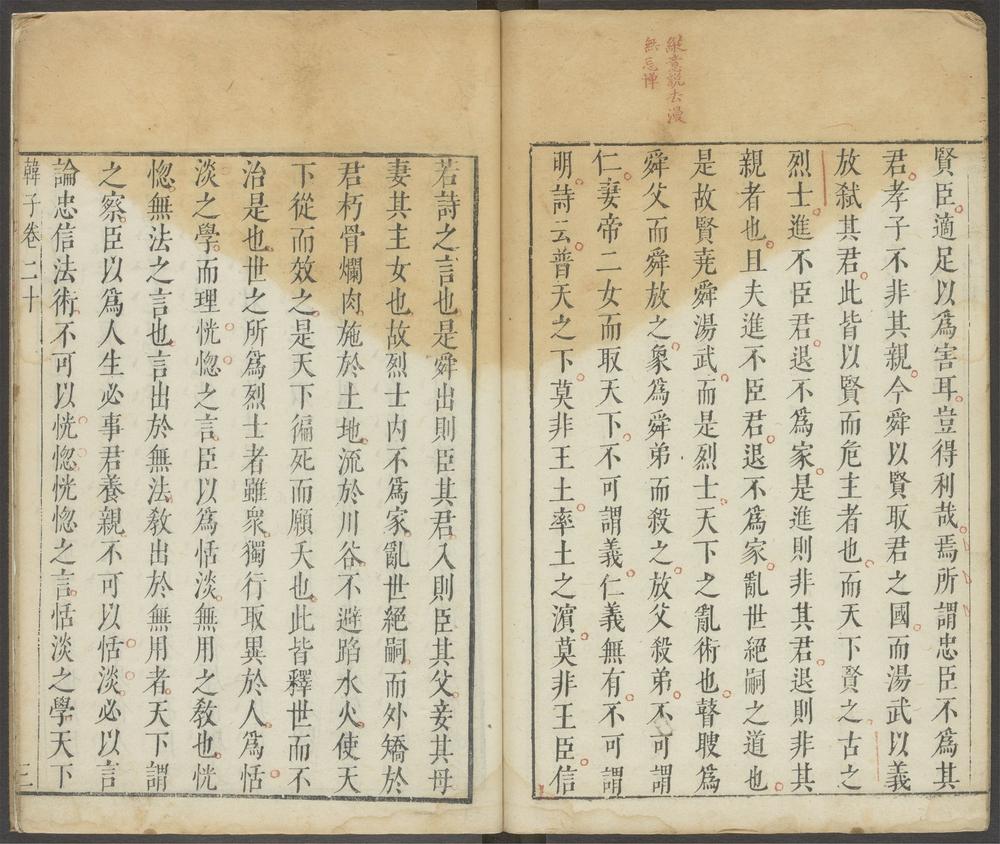 縱意說去漫
無忌憚
賢臣適足以爲害耳豈得利哉焉所謂忠臣不爲其
君孝子不非其親今舜以賢取君之國而湯武以義
放弑其君此皆以賢而危主者也而天下賢之古之
烈士進不臣君退不爲家是進則非其君退則非其
親者也且夫進不臣君退不爲家亂世絕嗣之道也
是故賢堯舜湯武而是烈士天下之亂術也瞽瞍爲
舜父而舜放之象爲舜弟而殺之放父殺弟不可謂
仁妻帝二女而取天下不可謂義仁義無有不可謂
明詩云普天之下莫非王土率土之濵莫非王臣信
若詩之言也是舜出則臣其君入則臣其父妾其母
妻其主女也故烈士内不爲家亂世絕嗣而外矯於
君朽骨爛肉施於土地流於川谷不避蹈水火使天
下從而效之是天下徧死而願夭也此皆釋世而不
治是也世之所爲烈士者雖衆獨行取異於人爲恬
淡之學而理恍惚之言臣以爲恬淡無用之敎也恍
惚無法之言也言出於無法敎出於無用者天下謂
之察臣以爲人生必事君養親不可以恬淡必以言
論忠信法術不可以恍惚恍惚之言恬淡之學天下
韓子卷二十
三